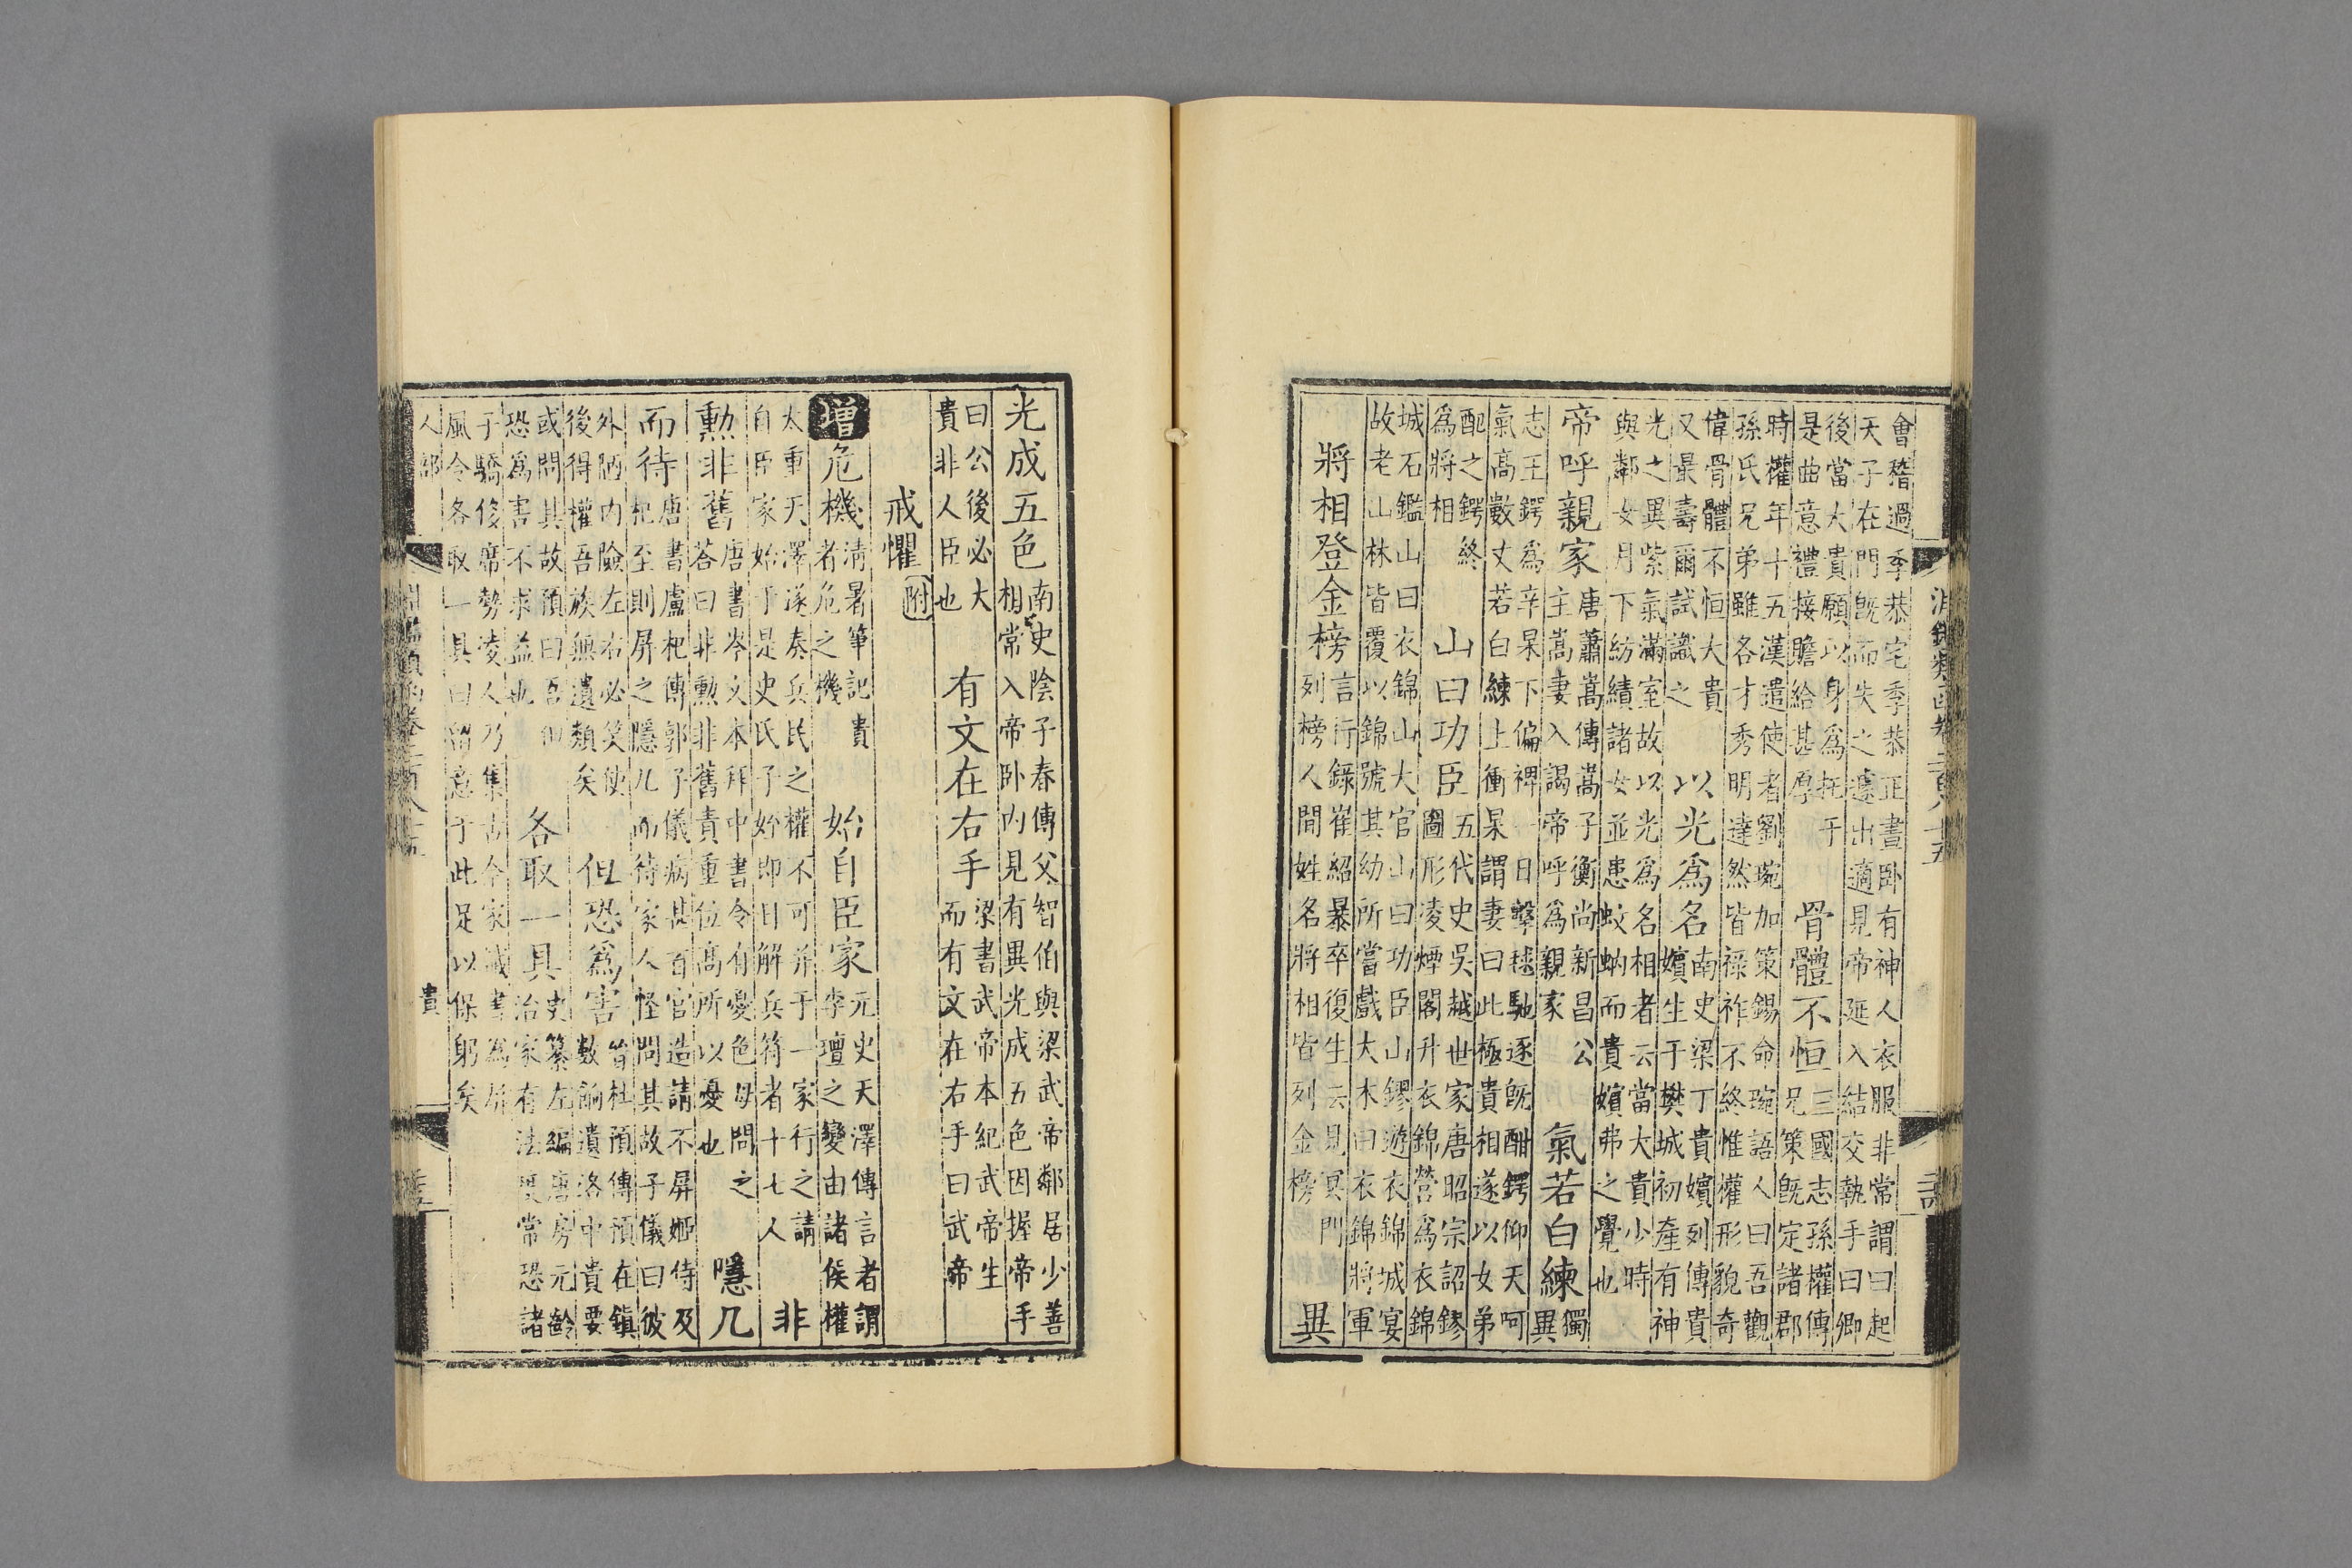 淵鑑類函卷二百八十五
會稽過季恭宅季恭正晝卧有神人衣服非常謂曰起
天子在門旣而失之遽出適見帝延入結交執手曰卿
後當大貴願以身爲托于
是曲意禮接贍給甚厚
骨體不恒
三國志孫權傳
兄策旣定諸郡
時權年十五漢遣使者劉琬加策錫命琬語人曰吾觀
孫氏兄弟雖各才秀明達然皆祿祚不終惟權形貌奇
偉骨體不恒大貴
又最壽爾試識之
以光爲名
南史梁丁貴嬪列傳貴
嬪生于樊城初產有神
光之異紫氣滿室故以光爲名相者云當大貴少時
與鄰女月下紡績諸女並患蚊蚋而貴嬪弗之覺也
帝呼親家
唐蕭嵩傳嵩子衡尚新昌公
主嵩妻入謁帝呼爲親家
氣若白練
獨
異
志王鍔爲辛杲下偏裨一日擊毬馳逐旣酣鍔仰天呵
氣高數丈若白練上衝杲謂妻曰此極貴相遂以女弟
配之鍔終
爲將相
山曰功臣
五代史吳越世家唐昭宗詔鏐
圖形凌煙閣升衣錦營爲衣錦
城石鑑山曰衣錦山大官山曰功臣山鏐遊衣錦城宴
故老山林皆覆以錦號其幼所嘗戲大木曰衣錦將軍
將相登金榜
言行錄崔紹暴卒復生云見冥門
列榜人間姓名將相皆列金榜
異
光成五色
南史陰子春傳父智伯與梁武帝鄰居少善
相常入帝卧內見有異光成五色因握帝手
曰公後必大
貴非人臣也
有文在右手
梁書武帝本紀武帝生
而有文在右手曰武帝
戒懼附
增危機
清暑筆記貴
者危之機
始自臣家
元史天澤傳言者謂
李璮之變由諸侯權
太重天澤遂奏兵民之權不可并于一家行之請
自臣家始于是史氏子姪即日解兵符者十七人
非
勲非舊
唐書岑文本拜中書令有憂色母問之
答曰非勲非舊責重位高所以憂也
隱几
而待
唐書盧杞傳郭子儀病甚百官造請不屏姬侍及
杞至則屏之隱几而待家人怪問其故子儀曰彼
外陋內險左右必笑使
後得權吾族無遺類矣
但恐爲害
晉杜預傳預在鎮
數餉遺洛中貴要
或問其故預曰吾但
恐爲害不求益也
各取一具
史纂左編唐房元齡
治家有法度常恐諸
子驕侈席勢凌人乃集古今家誡書爲屏
風令各取一具曰留意于此足以保躬矣
人部
貴